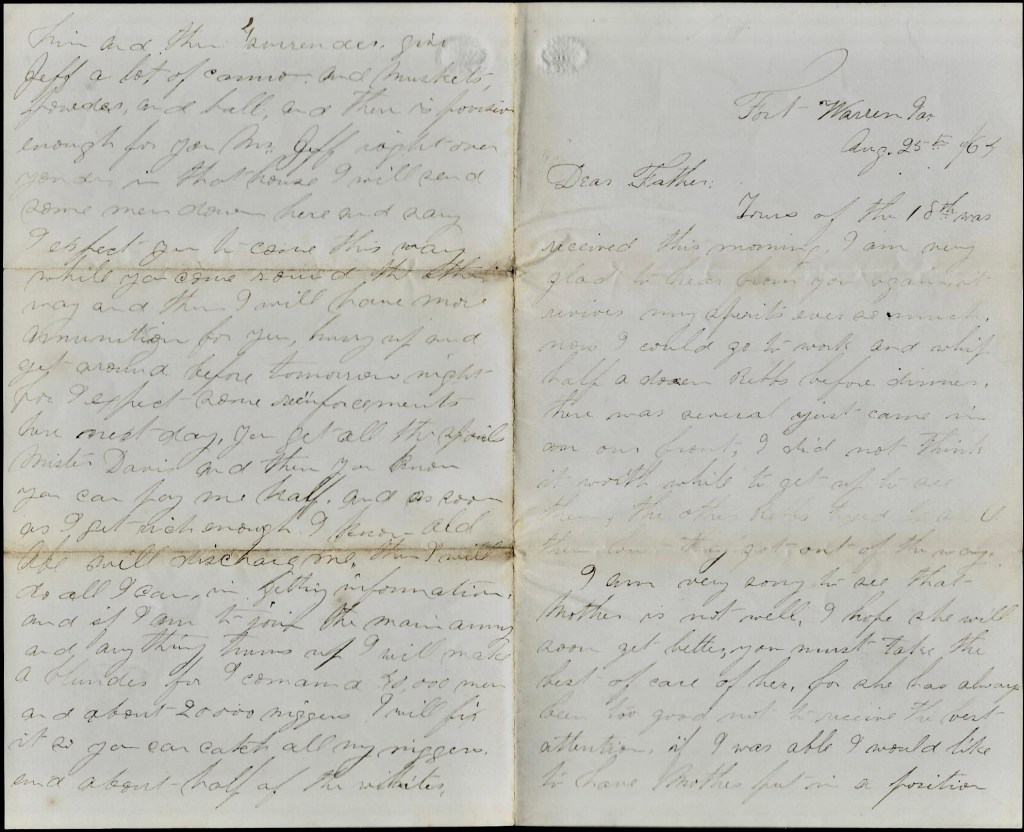 him and then surrender, give
Jeff a lot of cannon and muskets,
powder, and ball, and then is provision
enough for you Mr. Jeff right over
yonder in that house I will send
some men down here and say
I expect you to come this way
while you come round the other
way and then I will have more
ammunition for you, hurry up and
get around before tomorrow night
for I expect some reenforcements
here next day, you get all the spoils
Mister Davis and then you know
you can pay me half. and as soon
as I get rich enough I know old
Abe will discharge me, then I will
do all I can, in getting information.
and if I am to join the main army
and anything turns up I will make
a blunder for I comand 30,000 men
and about 20000 niggers I will fix
it so you can catch all my niggers.
and about half of the whites.
Fort Warren
Aug. 25th /64
Dear Father;
Yours of the 18th was
received this morning. I am very
glad to hear from you again, it
revives my spirits ever so much.
now I could go to work and whip
half a dozen Rebbs before dinner.
there was several just came in
on our front, I did not think
it worth while to get up to see
them, the other Rebbs tried to
them but they got out of the way.
I am very sorry to see that
Mother is not well, I hope she will
soon get better, you must take the
best of care of her, for she has always
been too good not to receive the best
attention. if I was able I would like
to have Mother put in a position